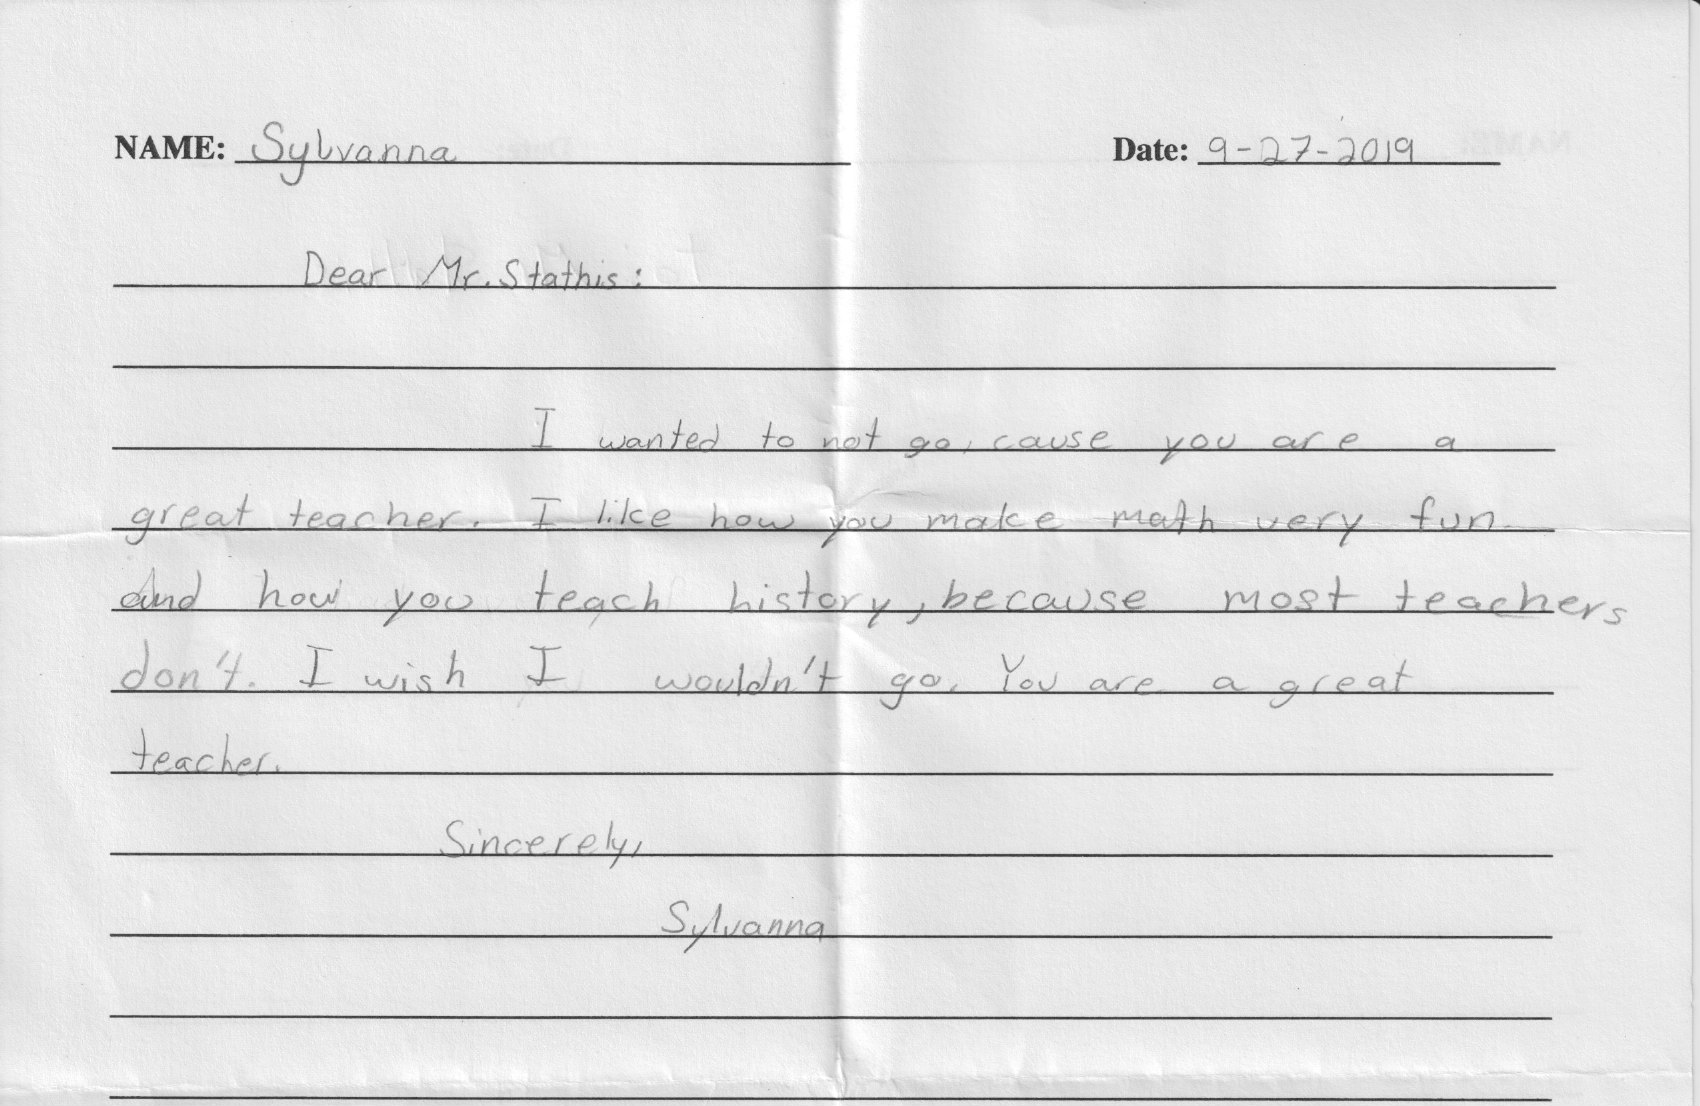 NAME: Sylvanna Date: 9-27-2019
Dear Mr. Stathis:
I wanted to not go, cause you are a
great teacher. I like how you make math very fun
and how you teach history, because most teachers
don't. I wish I wouldn't go. You are a great
teacher.
Sincerely,
Sylvanna